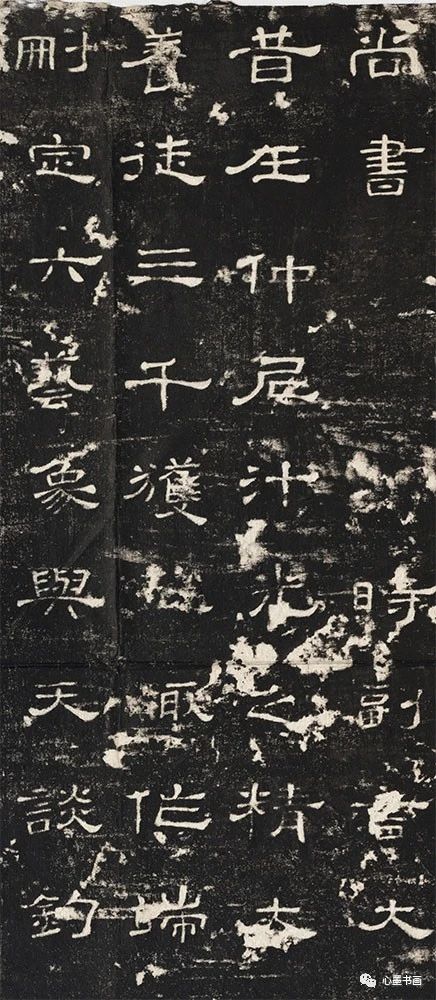 尚書時副言大
昔在仲尼汁光之精大
養徒三千獲趣作端
刪定六藝象與天談鉤
心墨书画